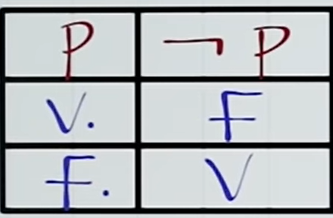 P ¬ P
V. F
F. V